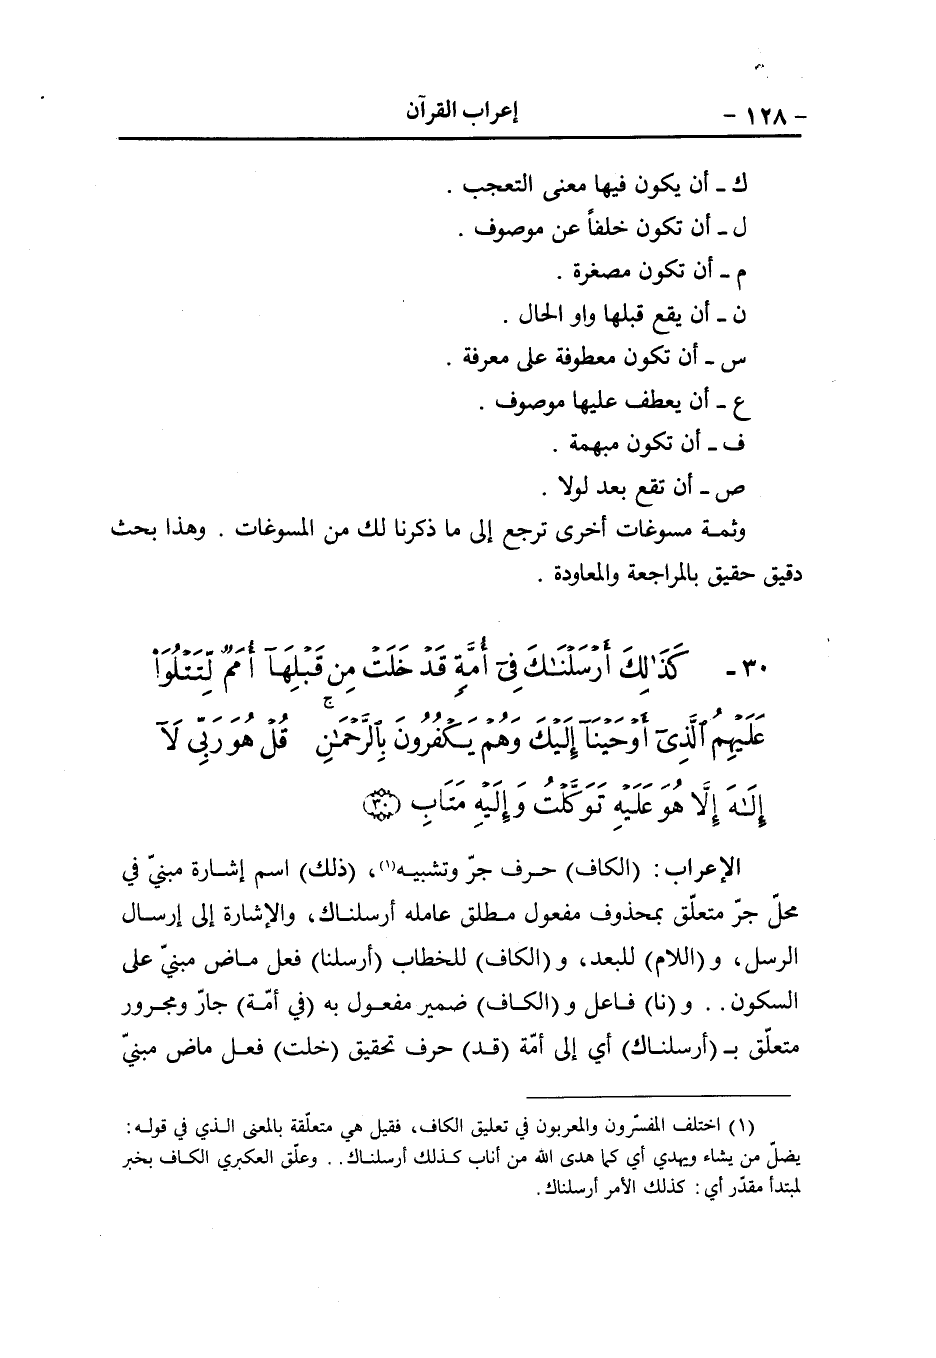 - ١٢٨ - إعراب القرآن
ك ـ أن يكون فيها معنى التعجب .
ل ـ أن تكون خلفاً عن موصوف .
م ـ أن تكون مصغرة .
ن ـ أن يقع قبلها واو الحال .
س ـ أن تكون معطوفة على معرفة .
ع ـ أن يعطف عليها موصوف .
ف ـ أن تكون مبهمة .
ص ـ أن تقع بعد لولا .
وثمة مسوغات أخرى ترجع إلى ما ذكرنا لك من المسوغات . وهذا بحث
دقيق حقيق بالمراجعة والمعاودة .
٣٠ - كَذَٰلِكَ أَرْسَلْنَٰكَ فِىٓ أُمَّةٍ قَدْ خَلَتْ مِن قَبْلِهَآ أُمَمٌ لِّتَتْلُوَا۟
عَلَيْهِمُ ٱلَّذِىٓ أَوْحَيْنَآ إِلَيْكَ وَهُمْ يَكْفُرُونَ بِٱلرَّحْمَٰنِ ۚ قُلْ هُوَ رَبِّى لَآ
إِلَٰهَ إِلَّا هُوَ عَلَيْهِ تَوَكَّلْتُ وَإِلَيْهِ مَتَابِ ﴿٣٠﴾
الإعراب : (الكاف) حرف جرّ وتشبيه(١)، (ذلك) اسم إشارة مبنيّ في
محلّ جرّ متعلّق بمحذوف مفعول مطلق عامله أرسلناك، والإشارة إلى إرسال
الرسل، و (اللام) للبعد، و (الكاف) للخطاب (أرسلنا) فعل ماض مبنيّ على
السكون . . و (نا) فاعل و (الكاف) ضمير مفعول به (في أمّة) جارّ ومجرور
متعلّق بـ (أرسلناك) أي إلى أمّة (قد) حرف تحقيق (خلت) فعل ماض مبنيّ
(١) اختلف المفسّرون والمعربون في تعليق الكاف، فقيل هي متعلّقة بالمعنى الذي في قوله :
يضلّ من يشاء ويهدي أي كما هدى الله من أناب كذلك أرسلناك . . وعلّق العكبري الكاف بخبر
لمبتدأ مقدّر أي : كذلك الأمر أرسلناك .